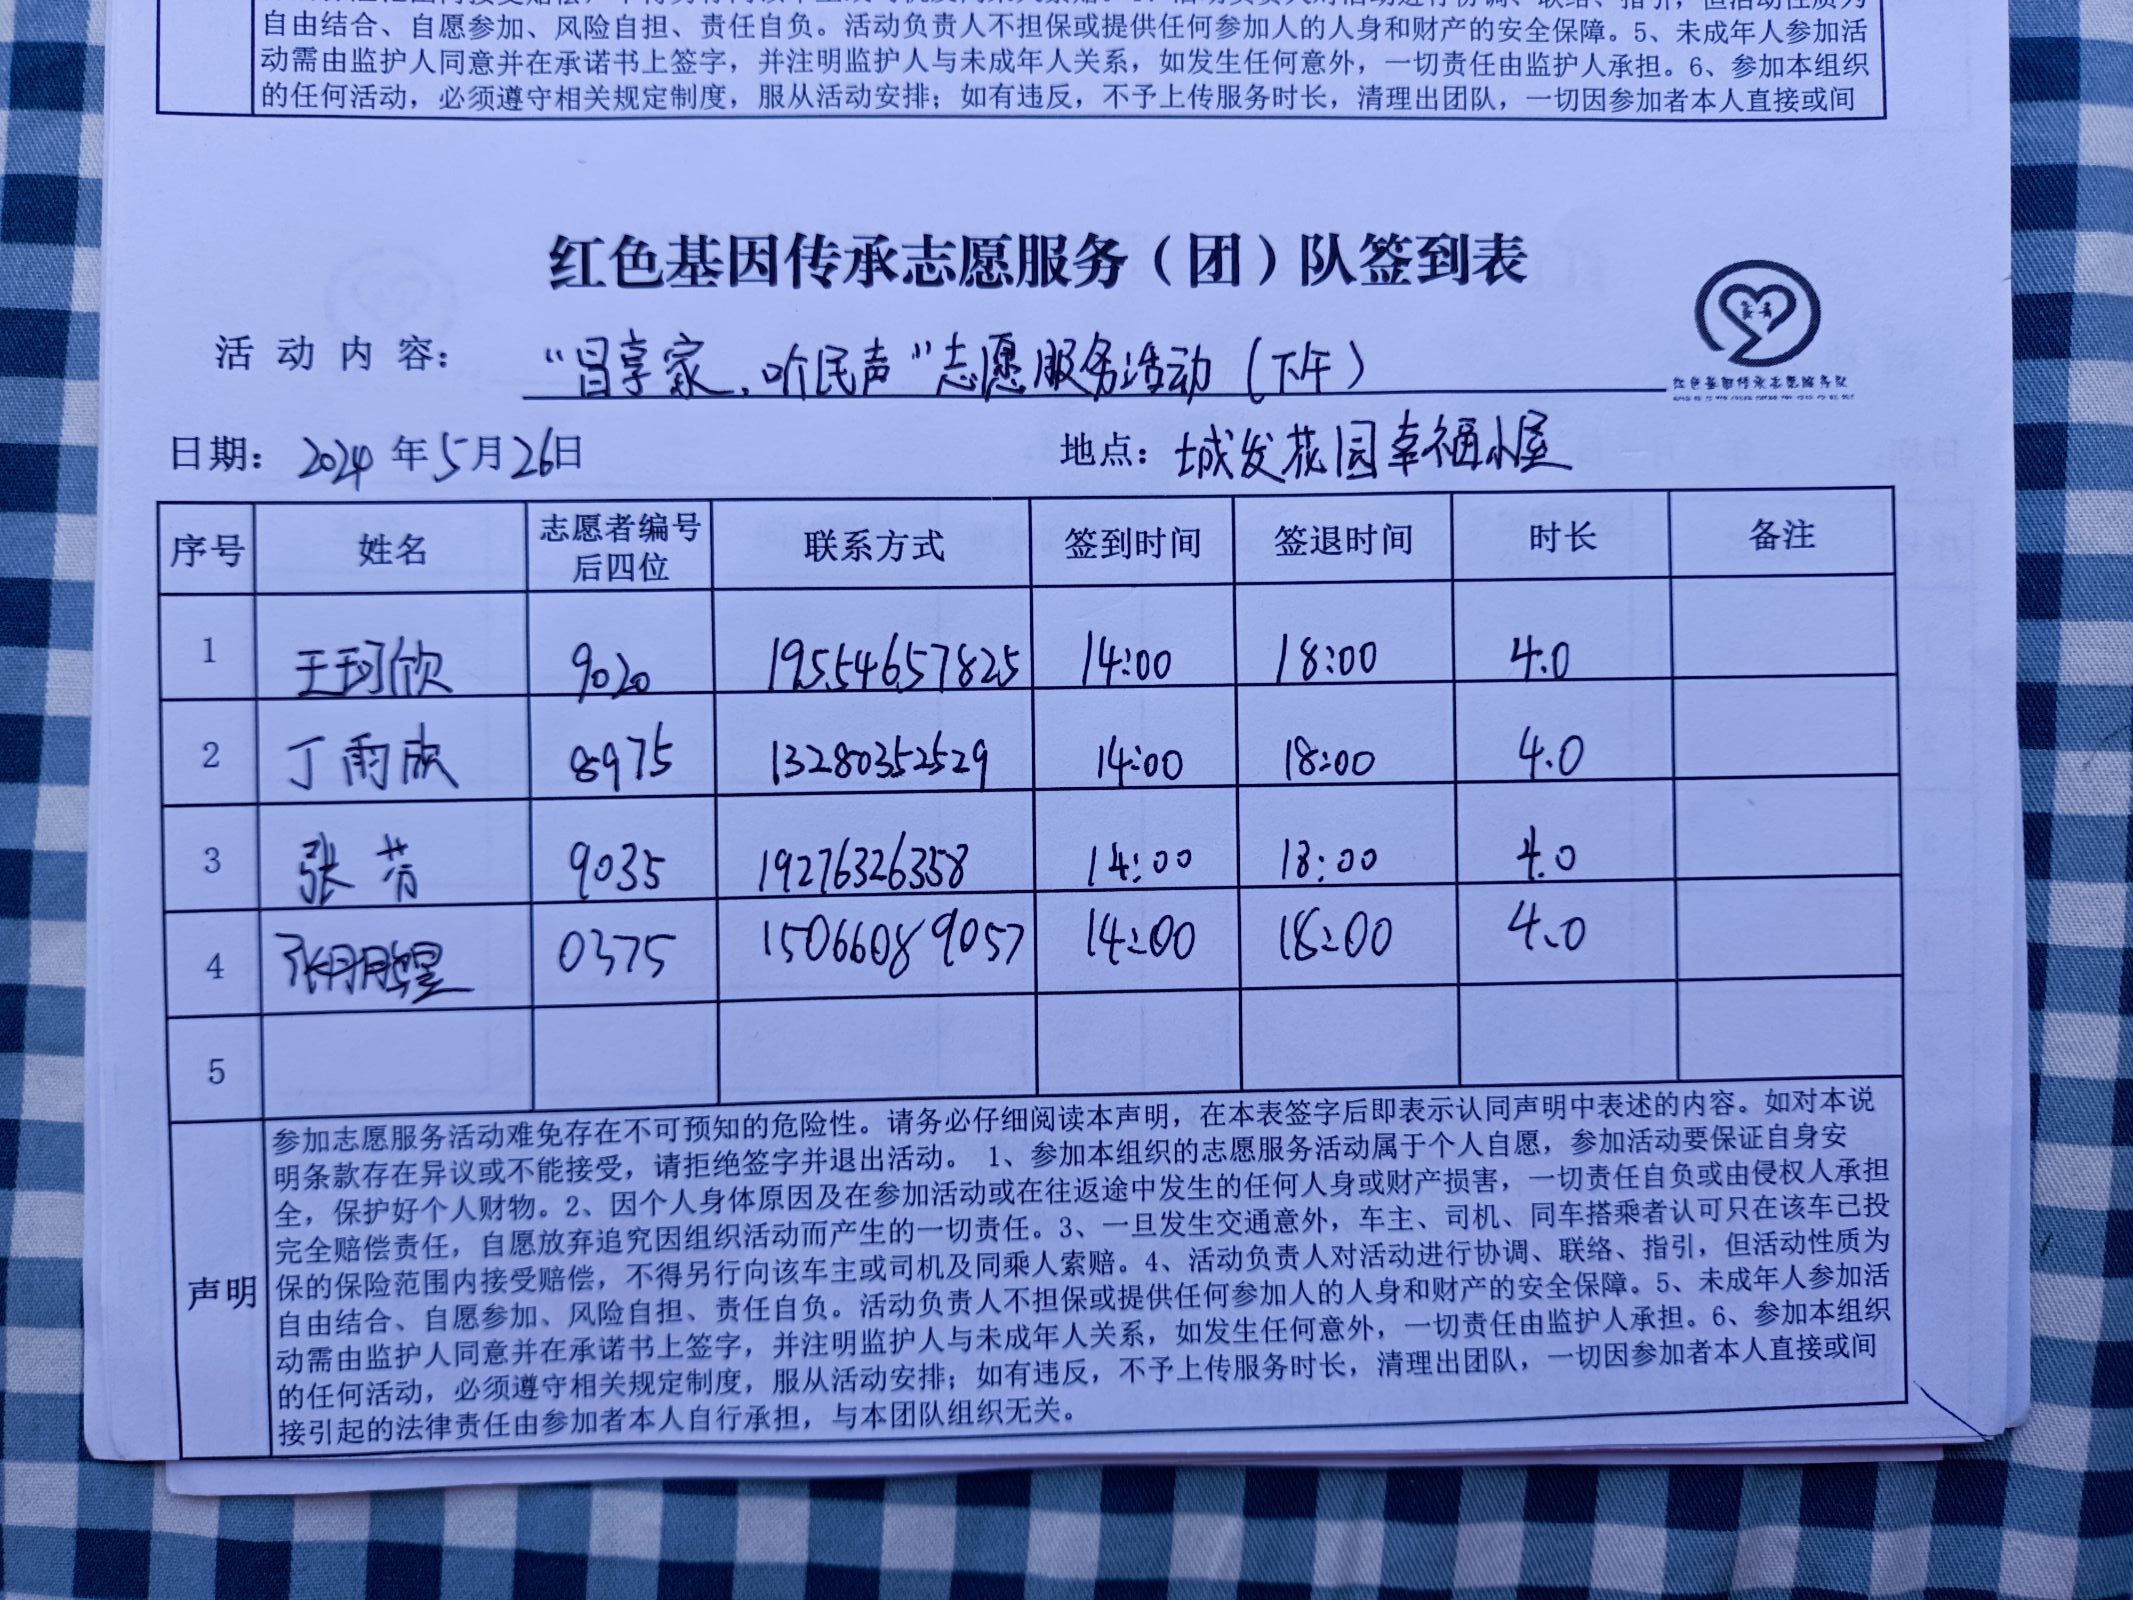 自由结合、自愿参加、风险自担、责任自负。活动负责人不担保或提供任何参加人的人身和财产的安全保障。5、未成年人参加活
动需由监护人同意并在承诺书上签字，并注明监护人与未成年人关系，如发生任何意外，一切责任由监护人承担。6、参加本组织
的任何活动，必须遵守相关规定制度，服从活动安排；如有违反，不予上传服务时长，清理出团队，一切因参加者本人直接或间
红色基因传承志愿服务（团）队签到表
活动内容： “昌享家，听民声”志愿服务活动（下午）
红色基因传承志愿服务队
日期：2024年5月26日 地点：城发花园幸福小屋
序号 姓名 志愿者编号后四位 联系方式 签到时间 签退时间 时长 备注
1 王珂欣 9020 19554657825 14:00 18:00 4.0
2 丁雨欣 8975 13280352529 14:00 18:00 4.0
3 张芳 9035 19276326358 14:00 18:00 4.0
4 张 0375 15066089057 14:00 18:00 4.0
5
声明
参加志愿服务活动难免存在不可预知的危险性。请务必仔细阅读本声明，在本表签字后即表示认同声明中表述的内容。如对本说
明条款存在异议或不能接受，请拒绝签字并退出活动。 1、参加本组织的志愿服务活动属于个人自愿，参加活动要保证自身安
全，保护好个人财物。2、因个人身体原因及在参加活动或在往返途中发生的任何人身或财产损害，一切责任自负或由侵权人承担
完全赔偿责任，自愿放弃追究因组织活动而产生的一切责任。3、一旦发生交通意外，车主、司机、同车搭乘者认可只在该车已投
保的保险范围内接受赔偿，不得另行向该车主或司机及同乘人索赔。4、活动负责人对活动进行协调、联络、指引，但活动性质为
自由结合、自愿参加、风险自担、责任自负。活动负责人不担保或提供任何参加人的人身和财产的安全保障。5、未成年人参加活
动需由监护人同意并在承诺书上签字，并注明监护人与未成年人关系，如发生任何意外，一切责任由监护人承担。6、参加本组织
的任何活动，必须遵守相关规定制度，服从活动安排；如有违反，不予上传服务时长，清理出团队，一切因参加者本人直接或间
接引起的法律责任由参加者本人自行承担，与本团队组织无关。